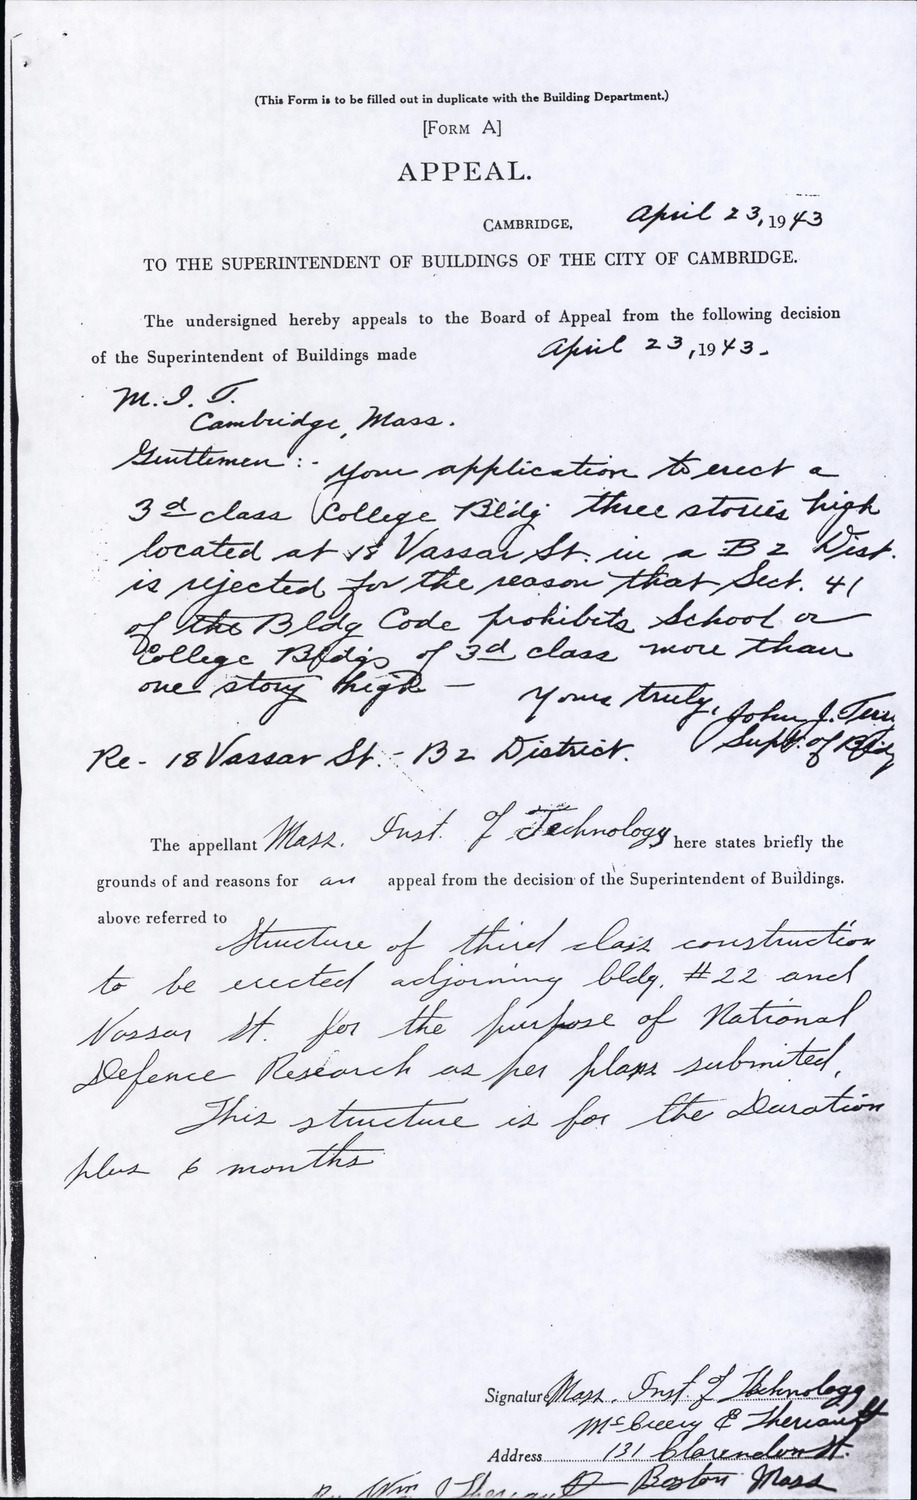 (This Form is to be filled out in duplicate with the Building Department.)
[FORM A]
APPEAL.
CAMBRIDGE, April 23, 1943
TO THE SUPERINTENDENT OF BUILDINGS OF THE CITY OF CAMBRIDGE.
The undersigned hereby appeals to the Board of Appeal from the following decision
of the Superintendent of Buildings made April 23, 1943.
M. I. T.
Cambridge, Mass.
Gentlemen:- Your application to erect a
3d class College Bldg three stories high
located at 18 Vassar St. in a B2 Dist.
is rejected for the reason that Sect. 41
of the Bldg Code prohibits School or
College Bldgs of 3d class more than
one story high —
Yours truly,
John J. Terr
Supt. of Bldg
Re - 18 Vassar St. - B2 District.
The appellant Mass. Inst. of Technology here states briefly the
grounds of and reasons for an appeal from the decision of the Superintendent of Buildings.
above referred to
Structure of third class construction
to be erected adjoining bldg. #22 and
Vassar St. for the purpose of National
Defence Research as per plans submited.
This structure is for the Duration
plus 6 months
Signature Mass. Inst. of Technology
McCreery & Theriault
Address 131 Clarendon St.
Boston Mass
By Wm J Theriault